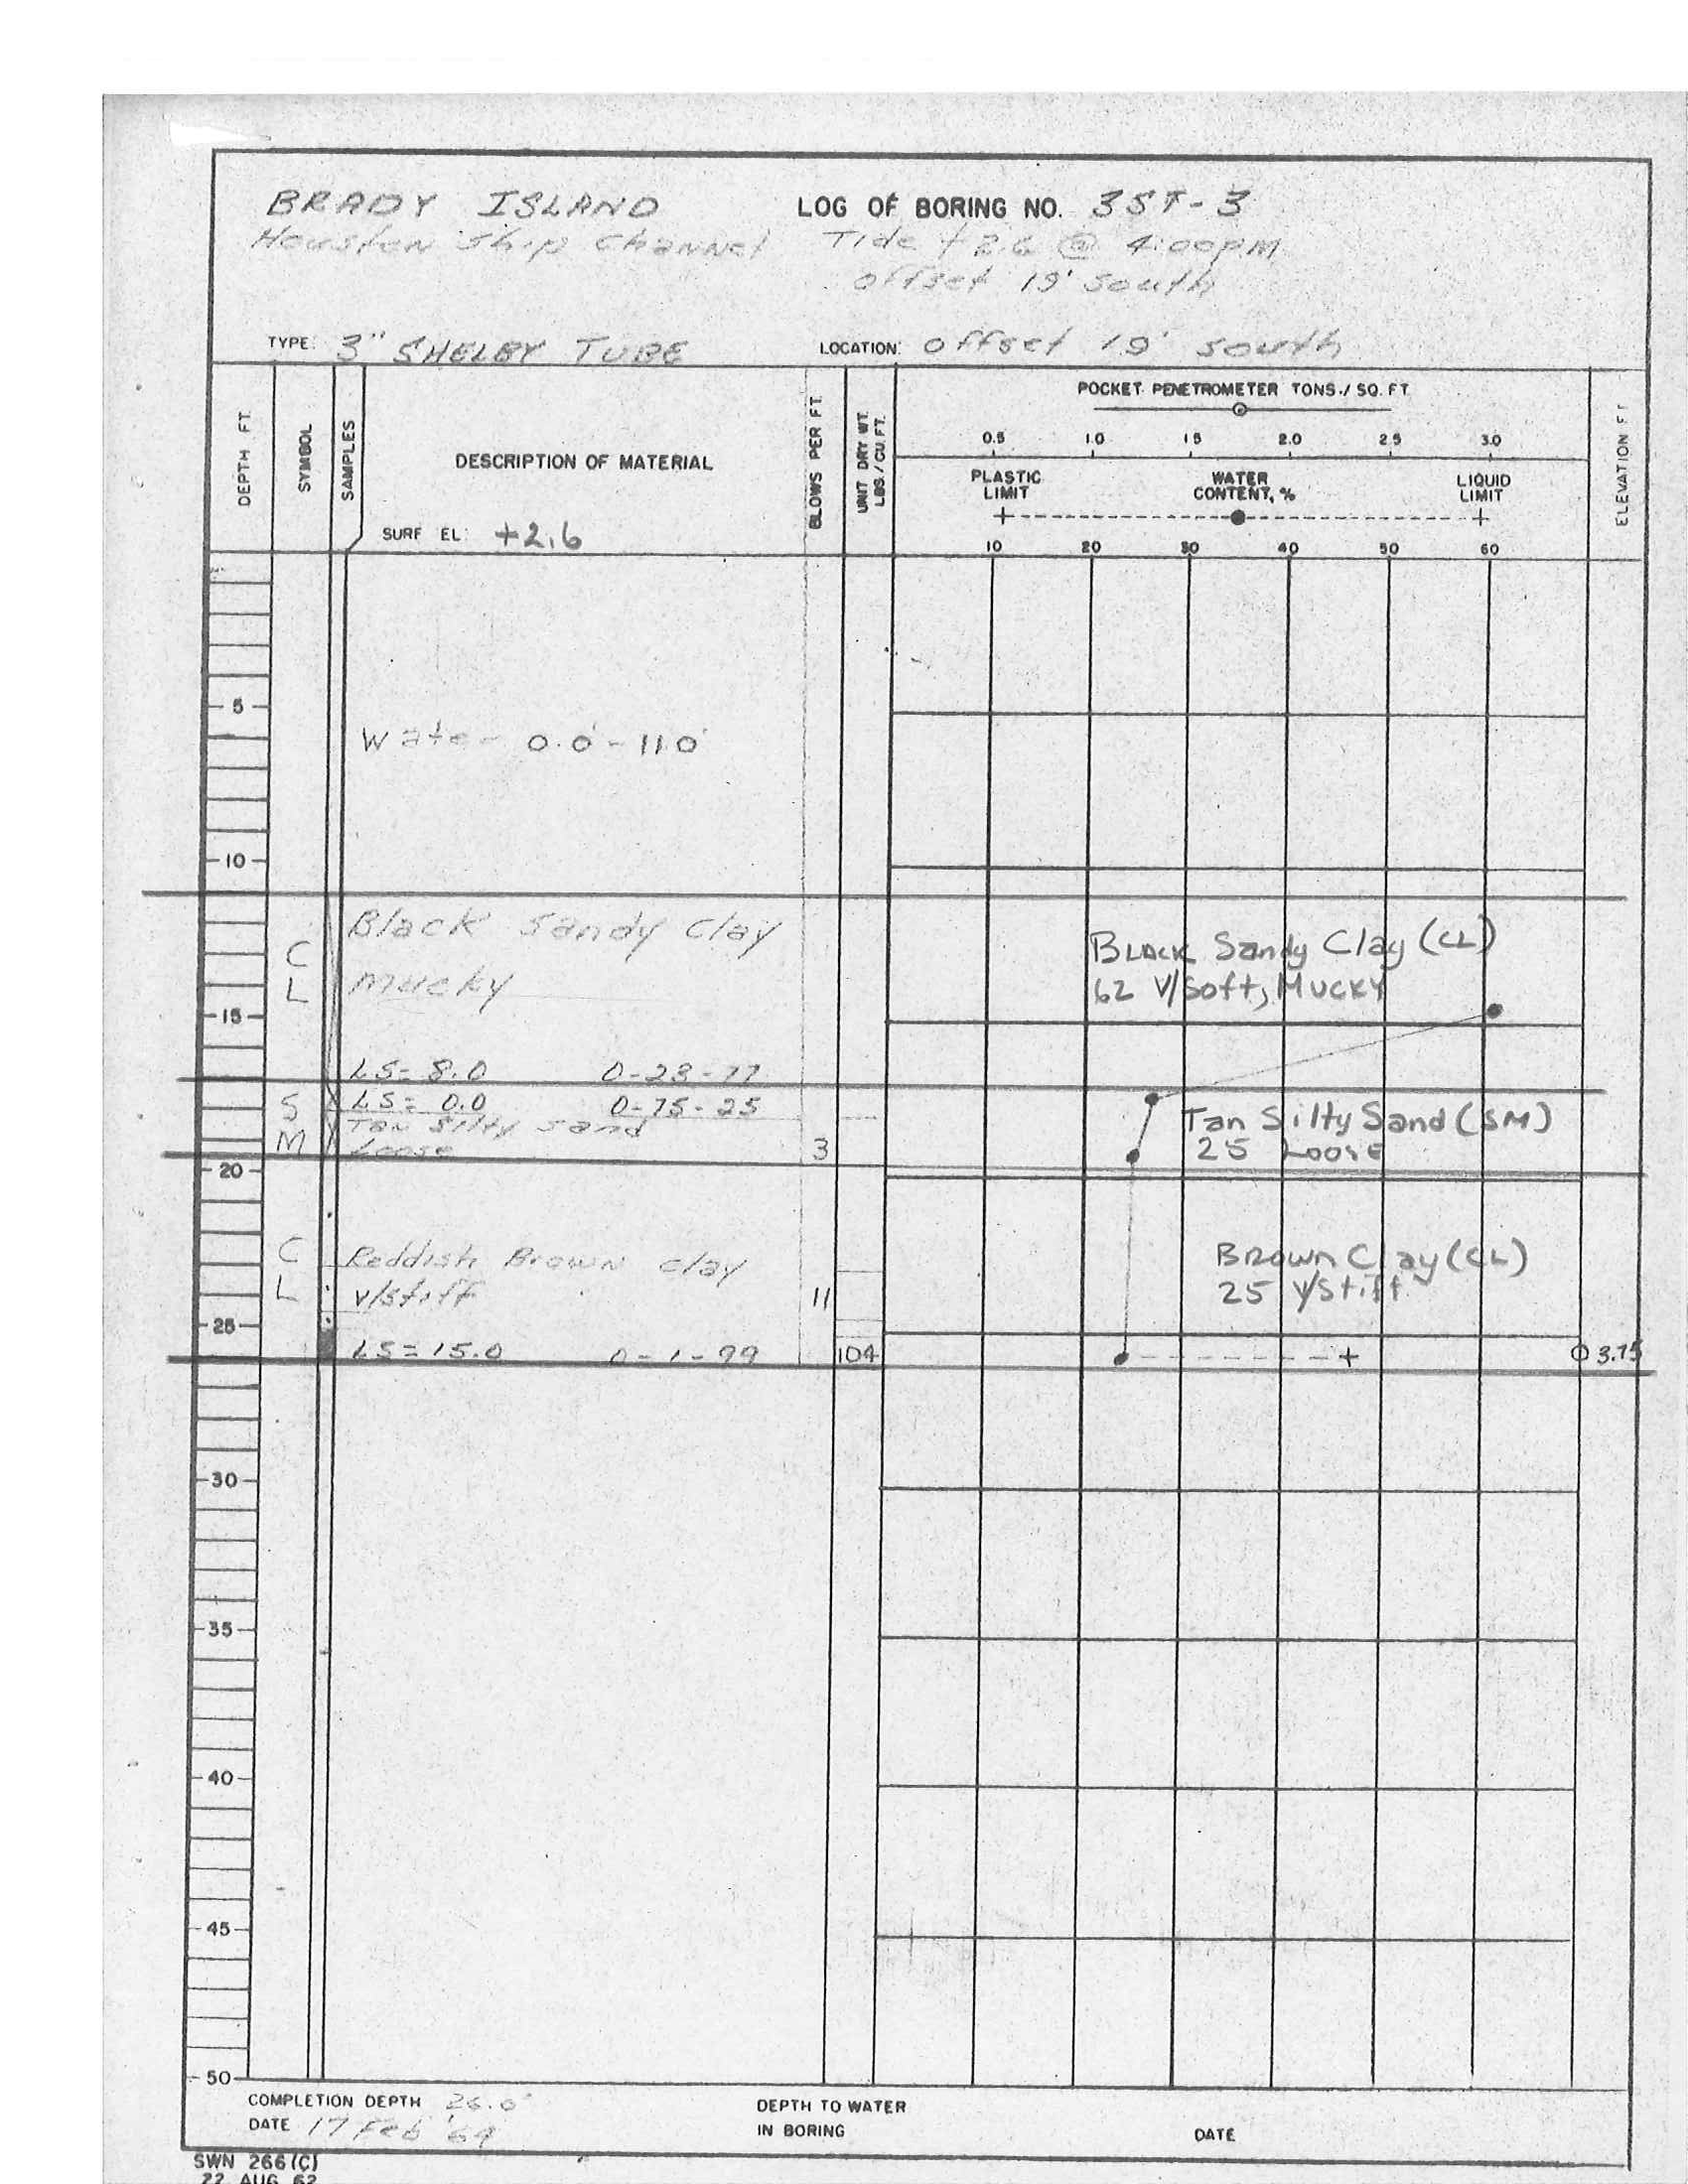 BRADY ISLAND LOG OF BORING NO. 3ST-3
Houston Ship Channel Tide +2.6 @ 4:00pm
offset 19' South
TYPE: 3" SHELBY TUBE LOCATION: offset 19' south
DEPTH FT.
SYMBOL
SAMPLES
DESCRIPTION OF MATERIAL
SURF EL: +2.6
BLOWS PER FT.
UNIT DRY WT.
LBS./CU.FT.
POCKET PENETROMETER TONS./SQ.FT.
0.5 1.0 1.5 2.0 2.5 3.0
PLASTIC LIMIT
WATER CONTENT, %
LIQUID LIMIT
+ +
10 20 30 40 50 60
ELEVATION FT
5
Water - 0.0' - 11.0'
10
CL
Black Sandy Clay
Mucky
BLACK Sandy Clay (CL)
62 V/Soft, MUCKY
15
LS= 8.0 0-23-77
SM
LS= 0.0 0-75-25
Tan Silty Sand
Loose
3
Tan Silty Sand (SM)
25 Loose
20
CL
Reddish Brown Clay
v/stiff
11
Brown Clay (CL)
25 V/Stiff
25
LS=15.0 0-1-99 104 + O 3.75
30
35
40
45
50
COMPLETION DEPTH 26.0'
DATE 17 Feb '64
DEPTH TO WATER
IN BORING
DATE
SWN 266 (C)
22 AUG 62